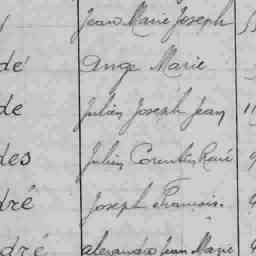 Jean Marie Joseph
dé Ange Marie
de Julien Joseph Jean 11
des Julien Corentin René 9
dré Joseph François.
dré Alexandre Jean Marie